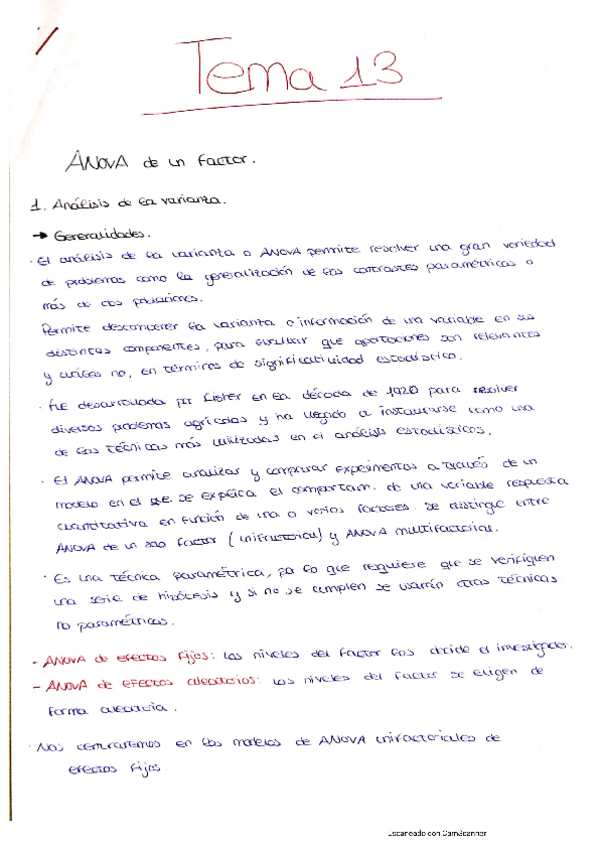 1/
Tema 13
ANOVA de un factor.
1. Análisis de la varianza.
→ Generalidades.
· El análisis de la varianza o ANOVA permite resolver una gran variedad
de problemas como la generalización de los contrastes paramétricos a
más de dos poblaciones.
Permite descomponer la varianza o información de una variable en sus
distintas componentes, para evaluar que aportaciones son relevantes
y cuáles no, en términos de significatividad estadística.
· Fue desarrollada por Fisher en la década de 1920 para resolver
diversos problemas agrícolas y ha llegado a instaurarse como una
de las técnicas más utilizadas en el análisis estadísticos.
· El ANOVA permite analizar y comparar experimentos a través de un
modelo en el que se explica el comportam. de una variable respuesta
cuantitativa en función de una o varios factores. Se distingue entre
ANOVA de un solo factor (unifactorial) y ANOVA multifactorial.
· Es una técnica paramétrica, por lo que requiere que se verifiquen
una serie de hipótesis y si no se cumplen se usarán otras técnicas
no paramétricas.
- ANOVA de efectos fijos: los niveles del factor los decide el investigador.
- ANOVA de efectos aleatorios: los niveles del factor se eligen de
forma aleatoria.
· Nos centraremos en los modelos de ANOVA unifactoriales de
efectos fijos
Escaneado con CamScanner